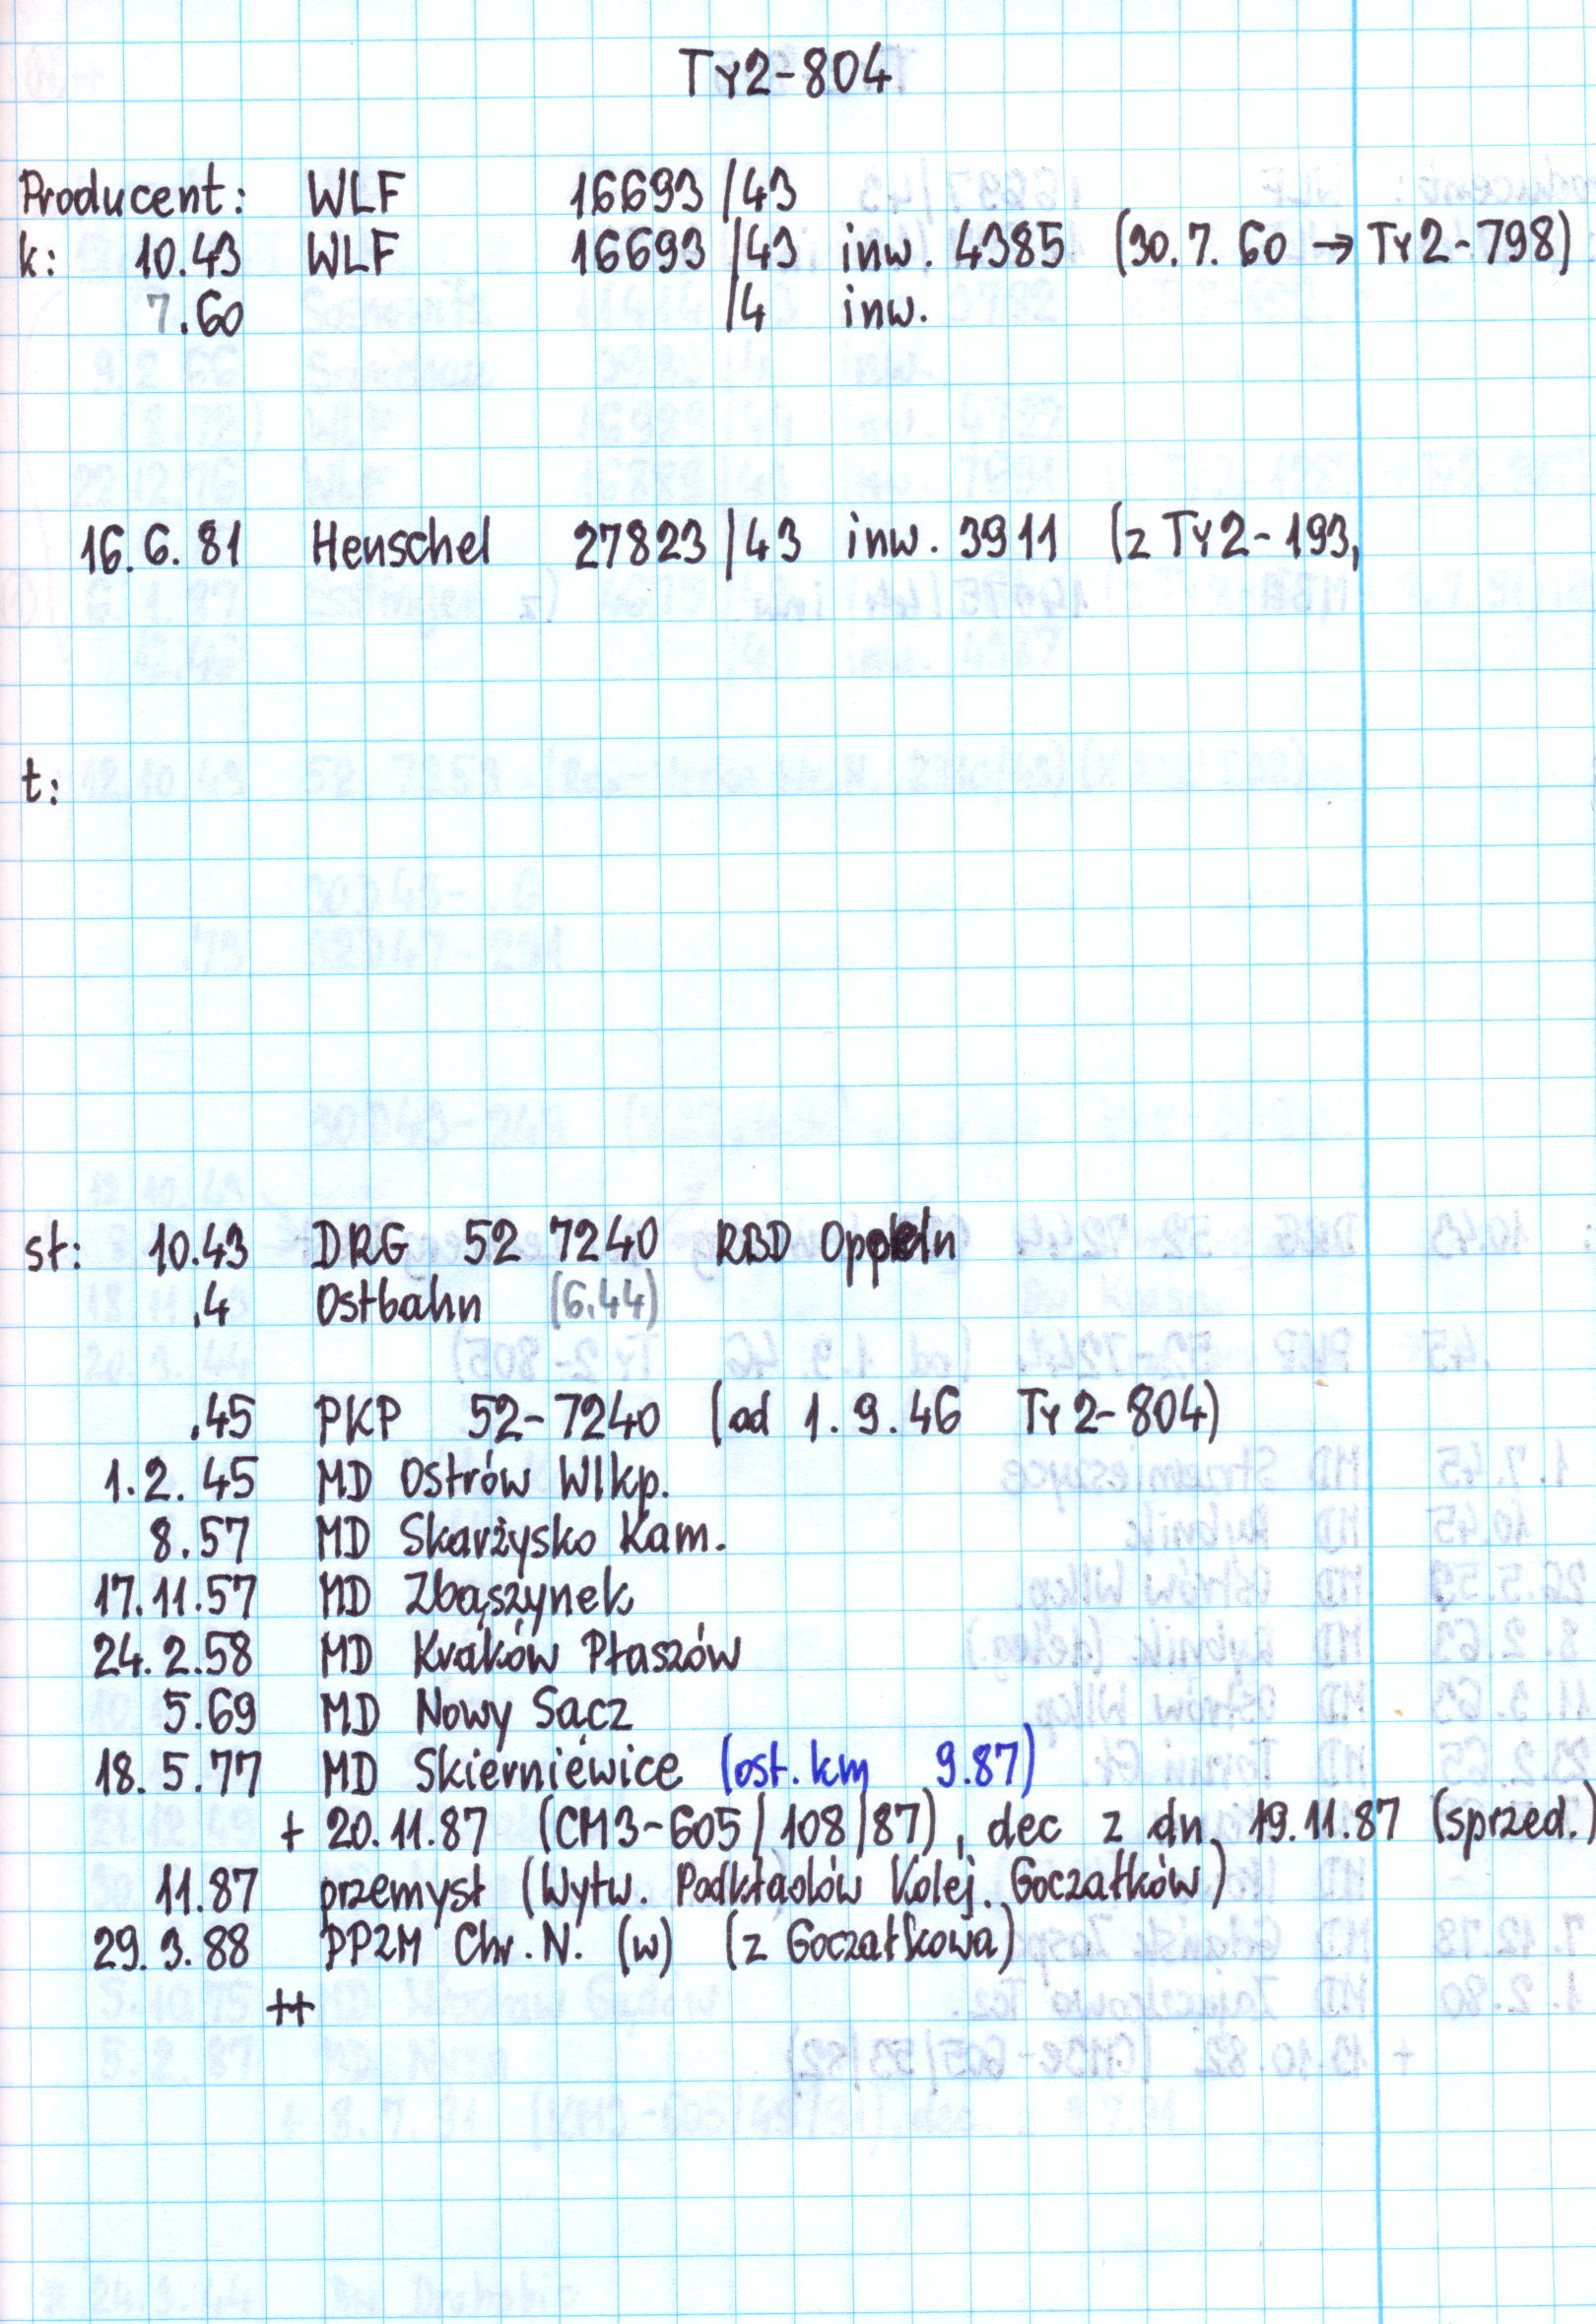 Ty2-804
Producent: WLF 16693/43
k: 10.43 WLF 16693/43 inw. 4385 (30.7.60 → Ty2-798)
7.60 /4 inw.
16.6.81 Henschel 27823/43 inw. 3911 (z Ty2-193,
t:
st: 10.43 DRG 52 7240 RBD Oppeln
.4 Ostbahn (6.44)
.45 PKP 52-7240 (od 1.9.46 Ty2-804)
1.2.45 MD Ostrów Wlkp.
8.57 MD Skarżysko Kam.
17.11.57 MD Zbąszynek
24.2.58 MD Kraków Płaszów
5.69 MD Nowy Sącz
18.5.77 MD Skierniewice (ost. km 9.87)
+ 20.11.87 (CM3-605/108/87), dec z dn. 19.11.87 (sprzed.)
11.87 przemysł (Wytw. Podkładów Kolej. Goczałków)
29.3.88 PPZM Chr. N. (w) (z Goczałkowa)
++